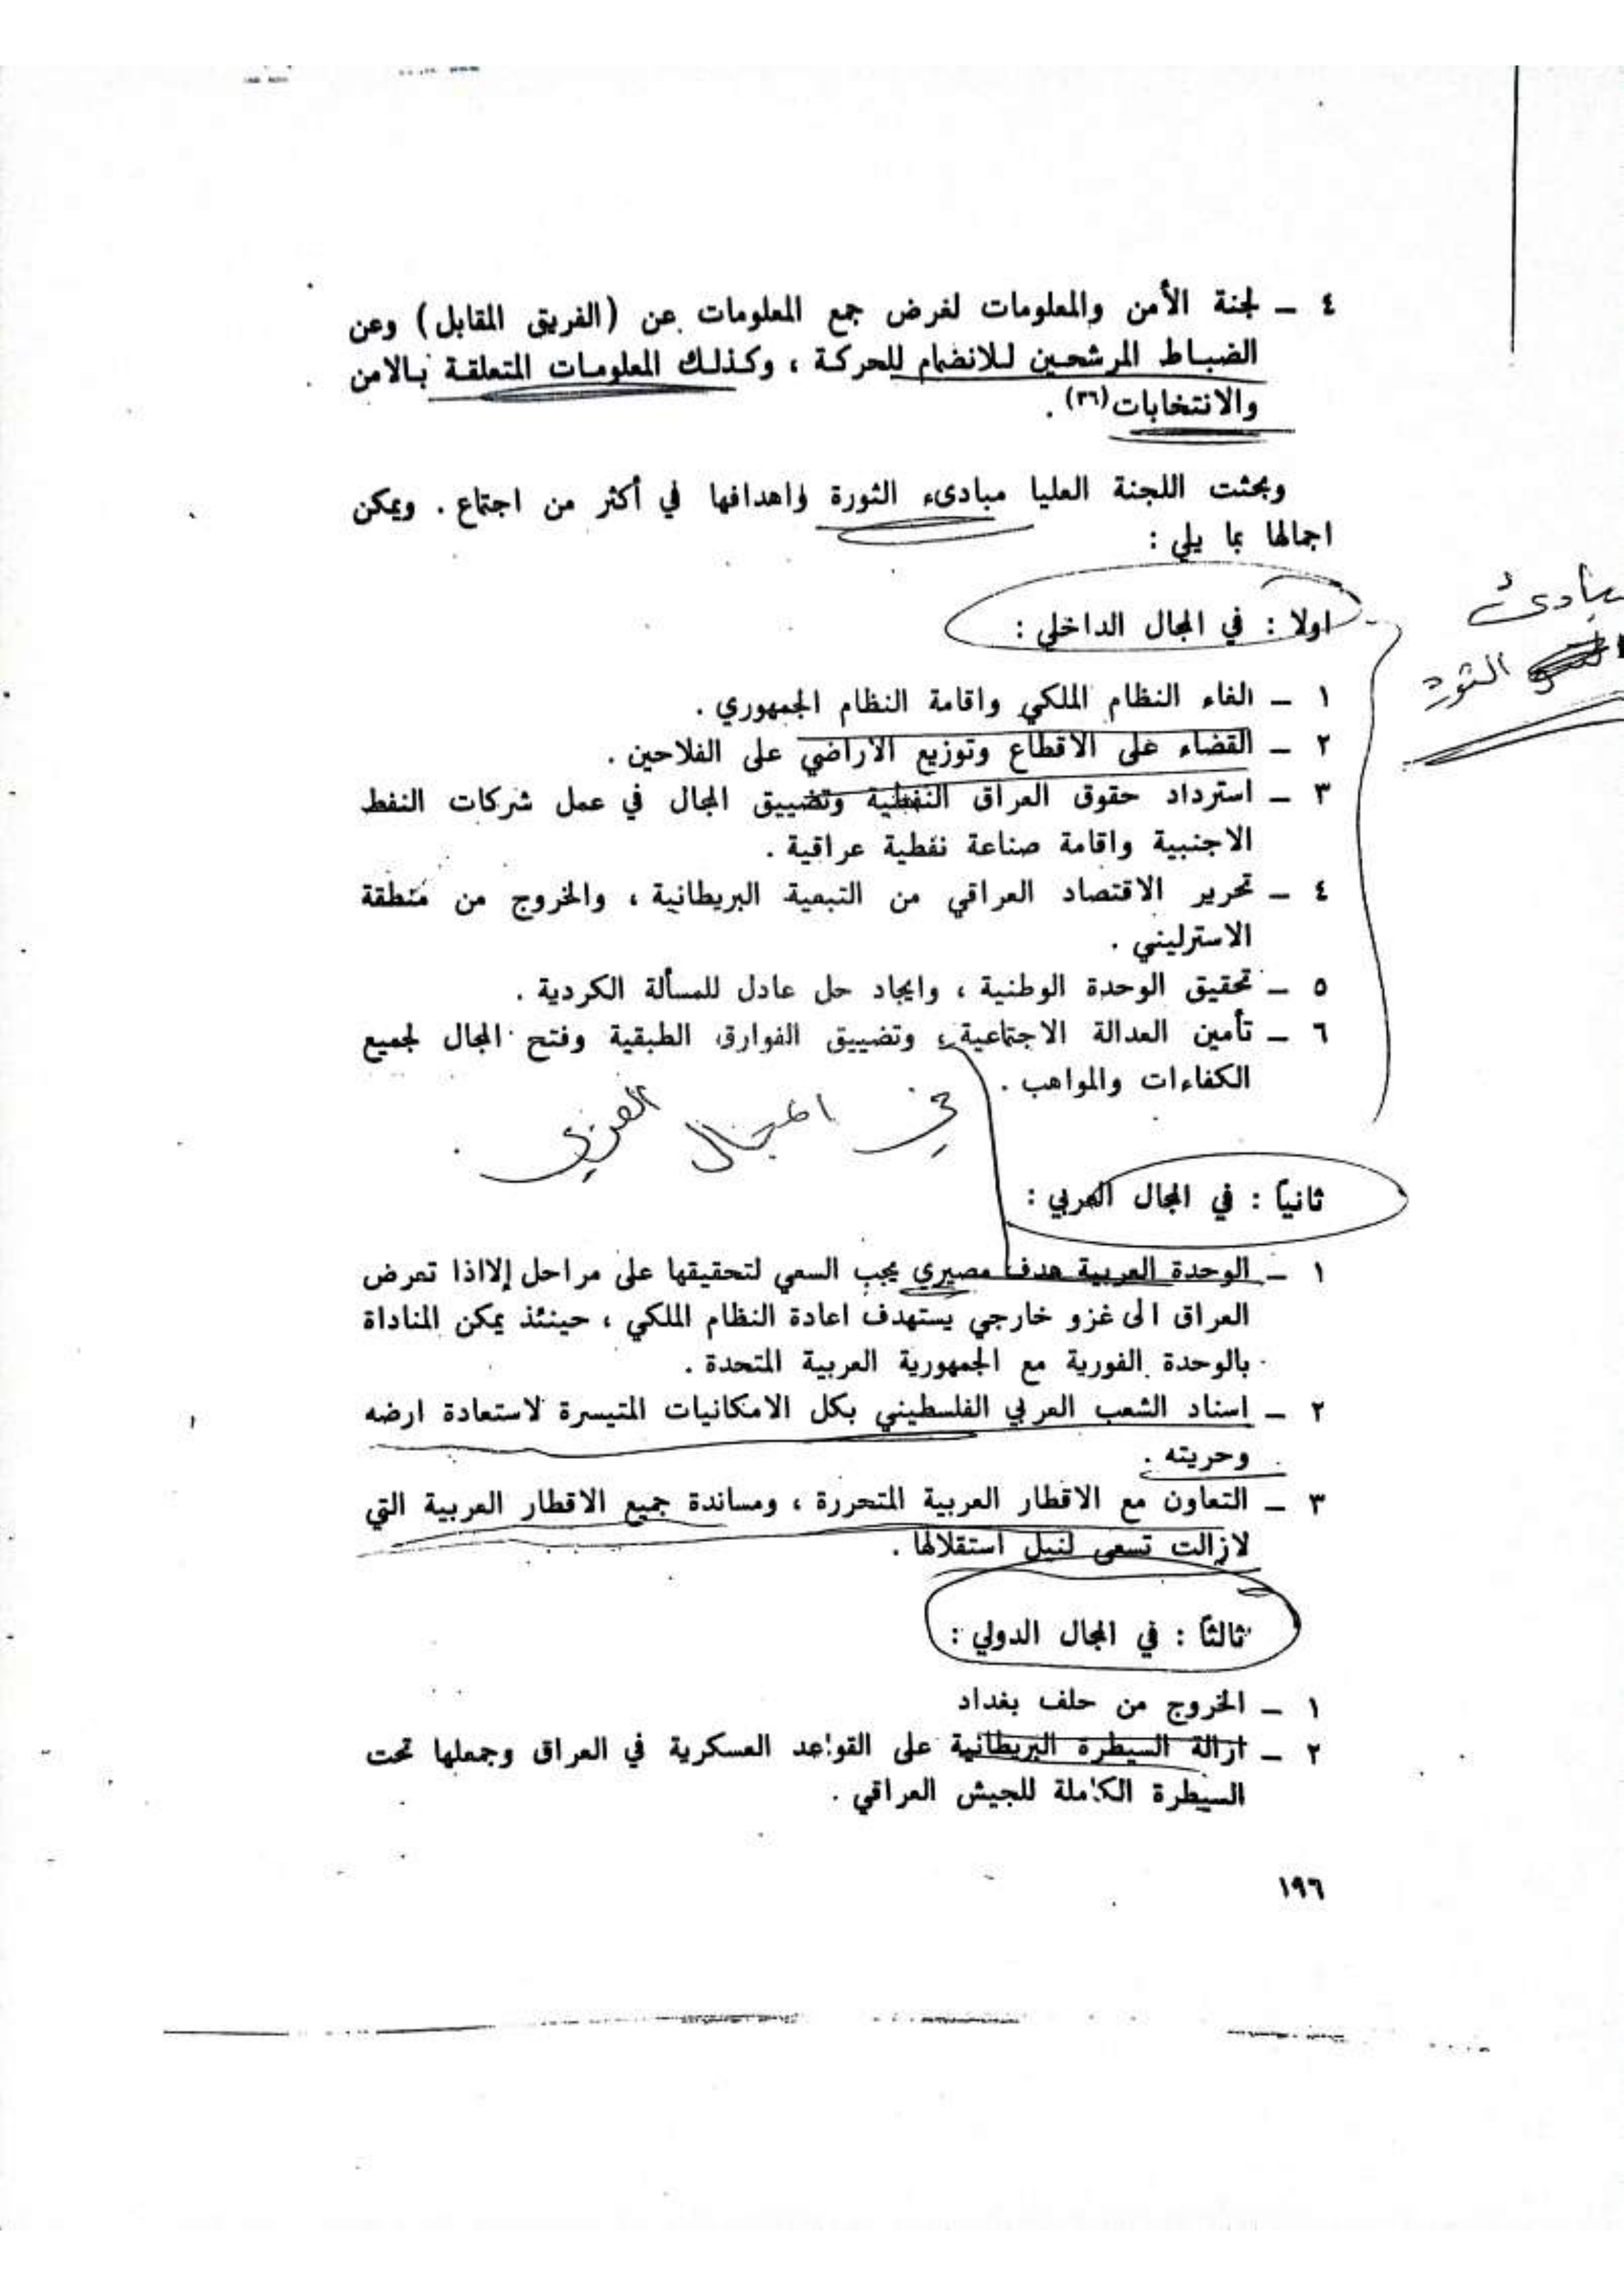 ٤ ــ لجنة الأمن والمعلومات لغرض جمع المعلومات عن (الفريق المقابل) وعن
الضباط المرشحين للانضمام للحركة ، وكذلك المعلومات المتعلقة بالامن
والانتخابات(٣٦) .
وبحثت اللجنة العليا مبادىء الثورة واهدافها في أكثر من اجتماع . ويمكن
اجمالها بما يلي :
مبادئ
الثورة
اولا : في المجال الداخلي :
١ ــ الغاء النظام الملكي واقامة النظام الجمهوري .
٢ ــ القضاء على الاقطاع وتوزيع الاراضي على الفلاحين .
٣ ــ استرداد حقوق العراق النفطية وتضييق المجال في عمل شركات النفط
الاجنبية واقامة صناعة نفطية عراقية .
٤ ــ تحرير الاقتصاد العراقي من التبعية البريطانية ، والخروج من منطقة
الاسترليني .
٥ ــ تحقيق الوحدة الوطنية ، وايجاد حل عادل للمسألة الكردية .
٦ ــ تأمين العدالة الاجتماعية ، وتضييق الفوارق الطبقية وفتح المجال لجميع
الكفاءات والمواهب .
في المجال العربي
ثانياً : في المجال العربي :
١ ــ الوحدة العربية هدف مصيري يجب السعي لتحقيقها على مراحل إلااذا تعرض
العراق الى غزو خارجي يستهدف اعادة النظام الملكي ، حينئذ يمكن المناداة
بالوحدة الفورية مع الجمهورية العربية المتحدة .
٢ ــ اسناد الشعب العربي الفلسطيني بكل الامكانيات المتيسرة لاستعادة ارضه
وحريته .
٣ ــ التعاون مع الاقطار العربية المتحررة ، ومساندة جميع الاقطار العربية التي
لازالت تسعى لنيل استقلالها .
ثالثاً : في المجال الدولي :
١ ــ الخروج من حلف بغداد
٢ ــ ازالة السيطرة البريطانية على القواعد العسكرية في العراق وجعلها تحت
السيطرة الكاملة للجيش العراقي .
١٩٦